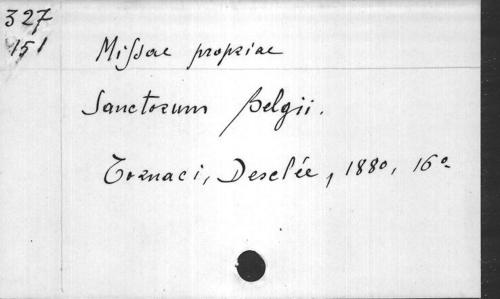 327
151
Missae propriae
Sanctorum Belgii.
Tornaci, Desclée, 1880, 16°